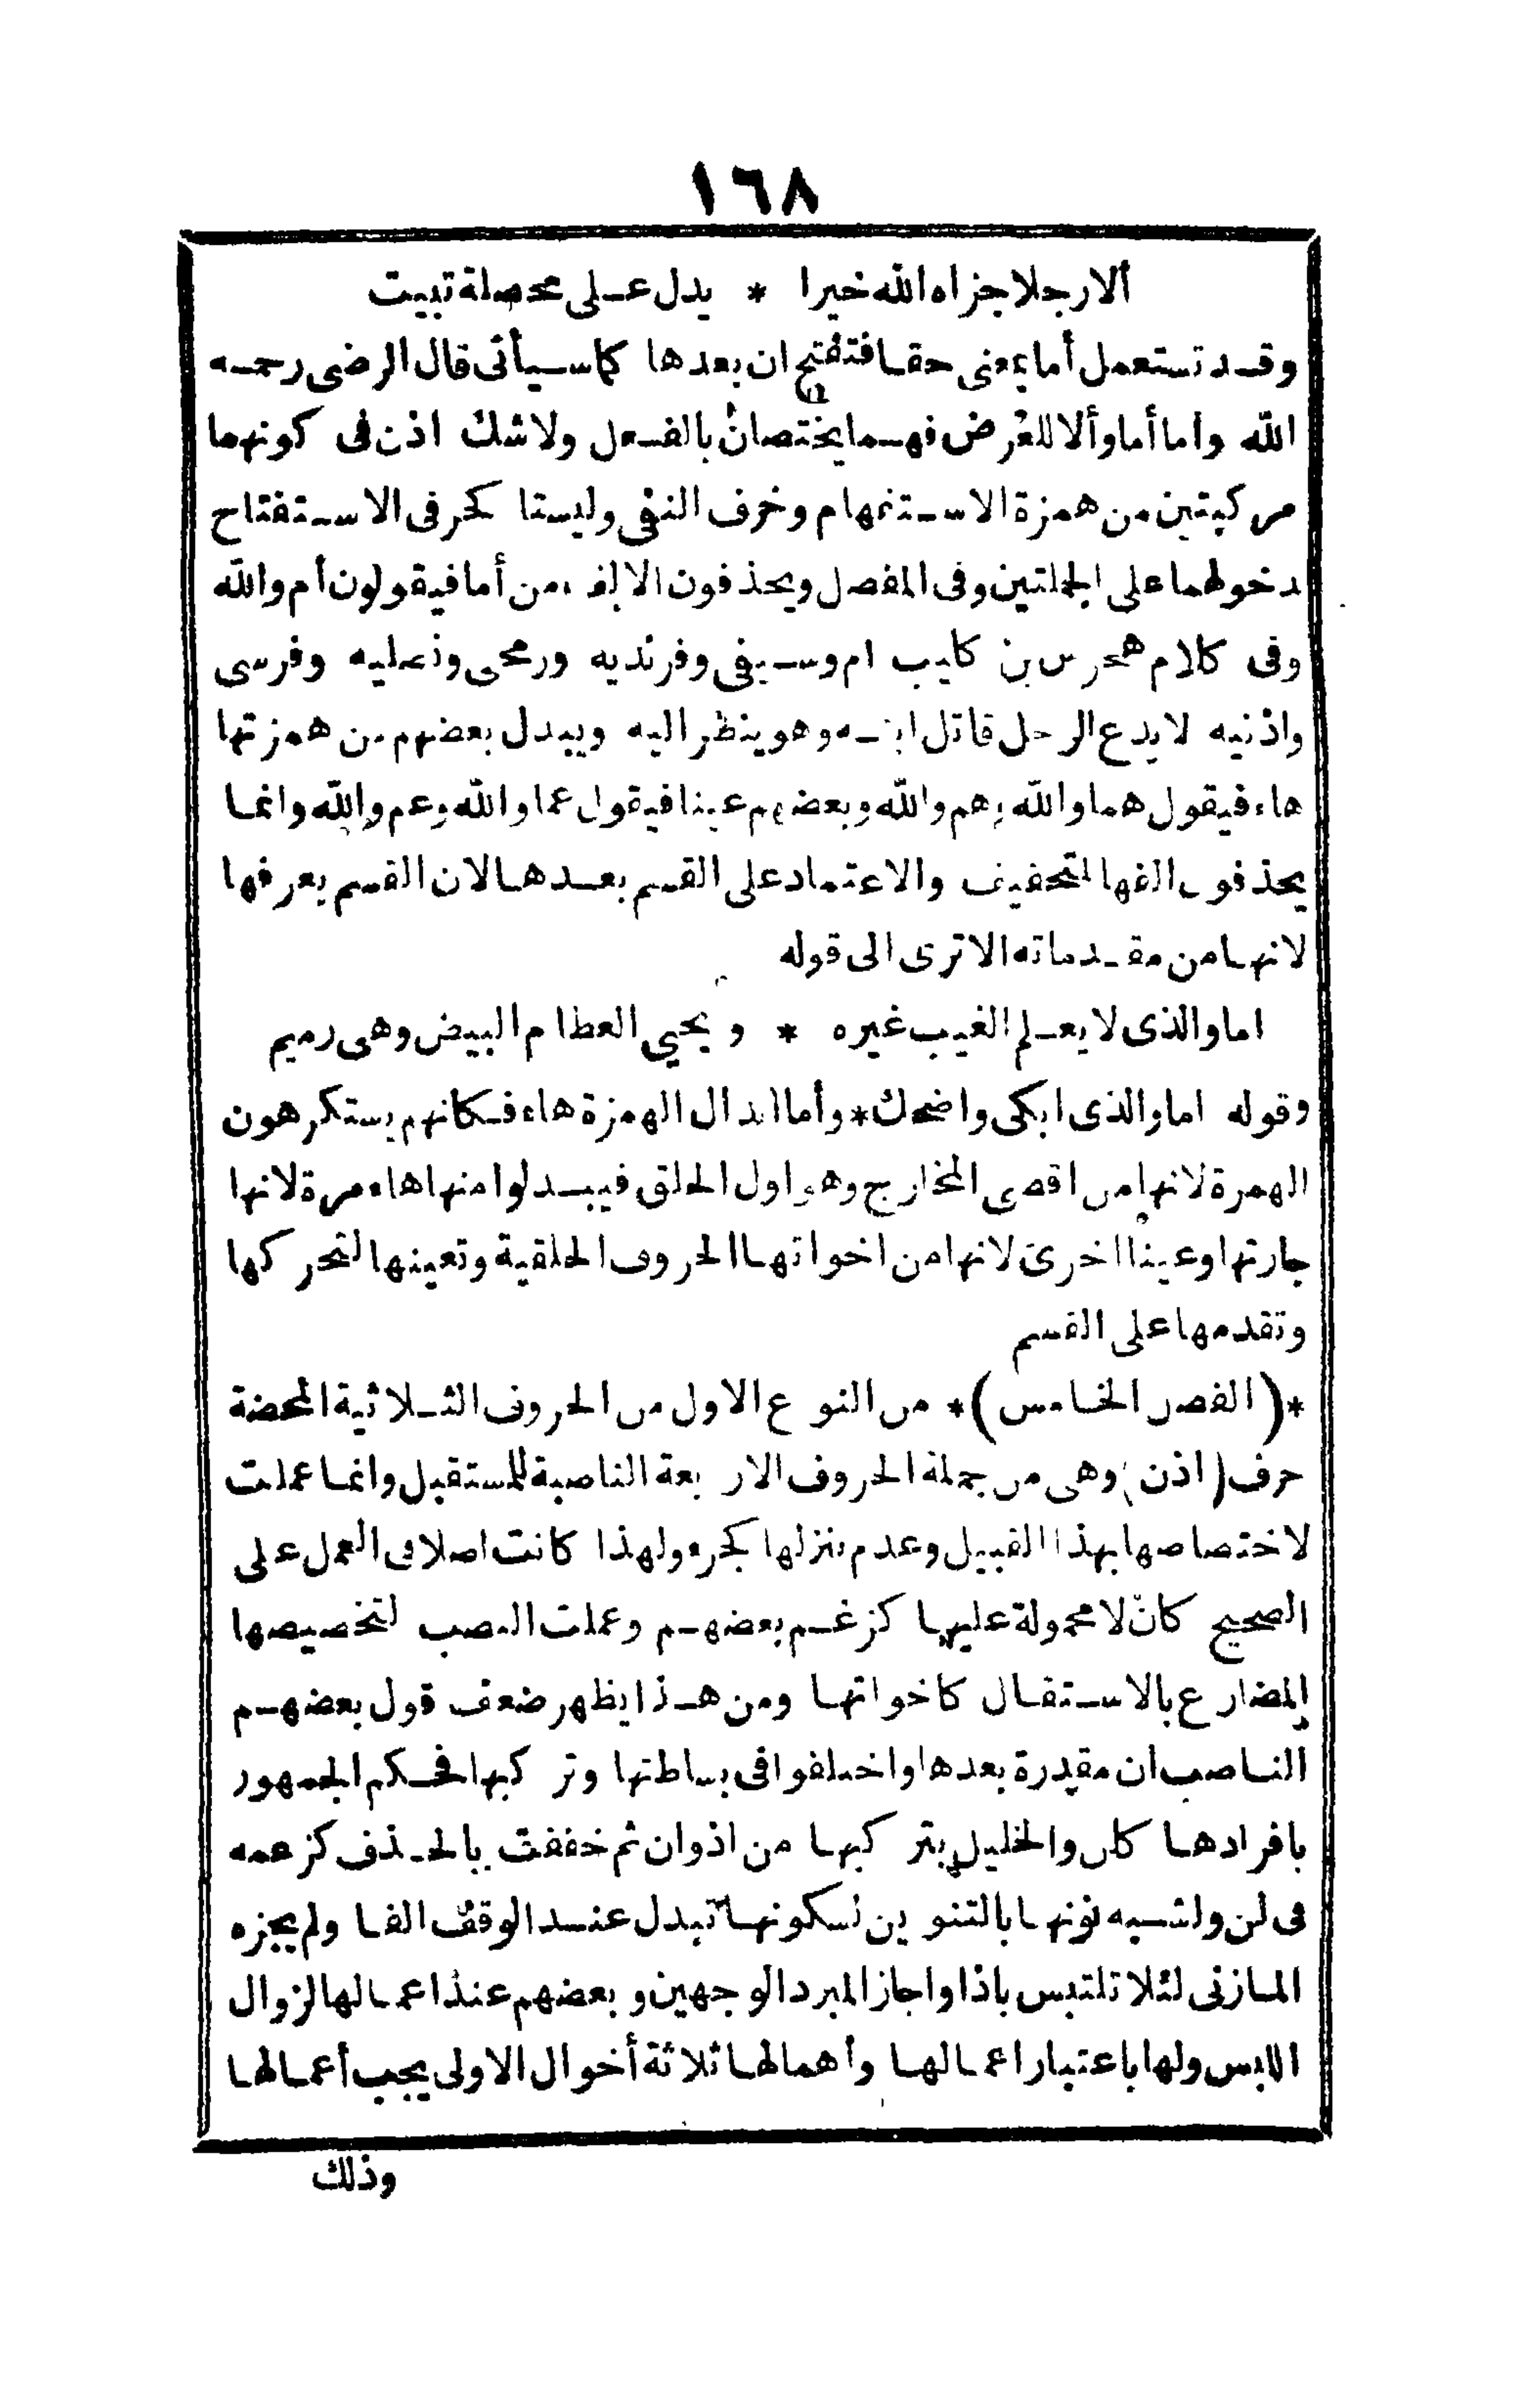 ١٦٨
ألا رجلا جزاه الله خيرا * يدل على محصلة تبيت
وقد تستعمل أما بمعنى حقا فتفتح ان بعدها كما سيأتى قال الرضى رحمه
الله واما أما وألا للعرض فهما يختصان بالفعل ولا شك اذن فى كونهما
مركبتين من همزة الاستفهام وحرف النفى وليستا كحرفى الاستفتاح
دخولهما على الجملتين وفى المفصل ويحذفون الالف من أما فيقولون أم والله
وفى كلام هجرس بن كليب ام وسيفى وفرنديه ورمحى ونصليه وفرسى
واذنيه لا يدع الرجل قاتل ابيه وهو ينظر اليه ويبدل بعضهم من همزتها
هاء فيقول هما والله وهم والله وبعضهم عينا فيقول عما والله وعم والله وانما
يحذفون الفها لتخفيف والاعتماد على القسم بعدها لان القسم يعرفها
لانها من مقدماته الا ترى الى قوله
اما والذى لا يعلم الغيب غيره * ويحيي العظام البيض وهى رميم
وقوله اما والذى ابكى واضحك * وأما ابدال الهمزة هاء فكانهم يستكرهون
الهمزة لانها من اقصى المخارج وهو اول الحلق فيبدلوا منها هاء مرة لانها
جارتها وعينا اخرى لانها من اخواتها الحروف الحلقية وتعينها لتحركها
وتقدمها على القسم
*(الفصل الخامس)* من النوع الاول من الحروف الثلاثية المحضة
حرف (اذن) وهى من جملة الحروف الاربعة الناصبة للمستقبل وانما عملت
لاختصاصها بهذا القبيل وعدم تنزلها كجزء ولهذا كانت اصلا فى العمل على
الصحيح كأنّ لا محمولة عليها كزعم بعضهم وعملت النصب لتخصيصها
المضارع بالاستقبال كاخواتها ومن هذا يظهر ضعف قول بعضهم
الناصب ان مقدرة بعدها واختلفوا فى بساطتها وتركبها فحكم الجمهور
بافرادها كلن والخليل بتركبها من اذ وان ثم خففت بالحذف كزعمه
فى لن ولشبه نونها بالتنوين لسكونها تبدل عند الوقف الفا ولم يجزه
المازنى لئلا تلتبس باذا واجاز المبرد الوجهين وبعضهم عند اعمالها لزوال
اللبس ولها باعتبار اعمالها وأهمالها ثلاثة أحوال الاولى يجب أعمالها
وذلك